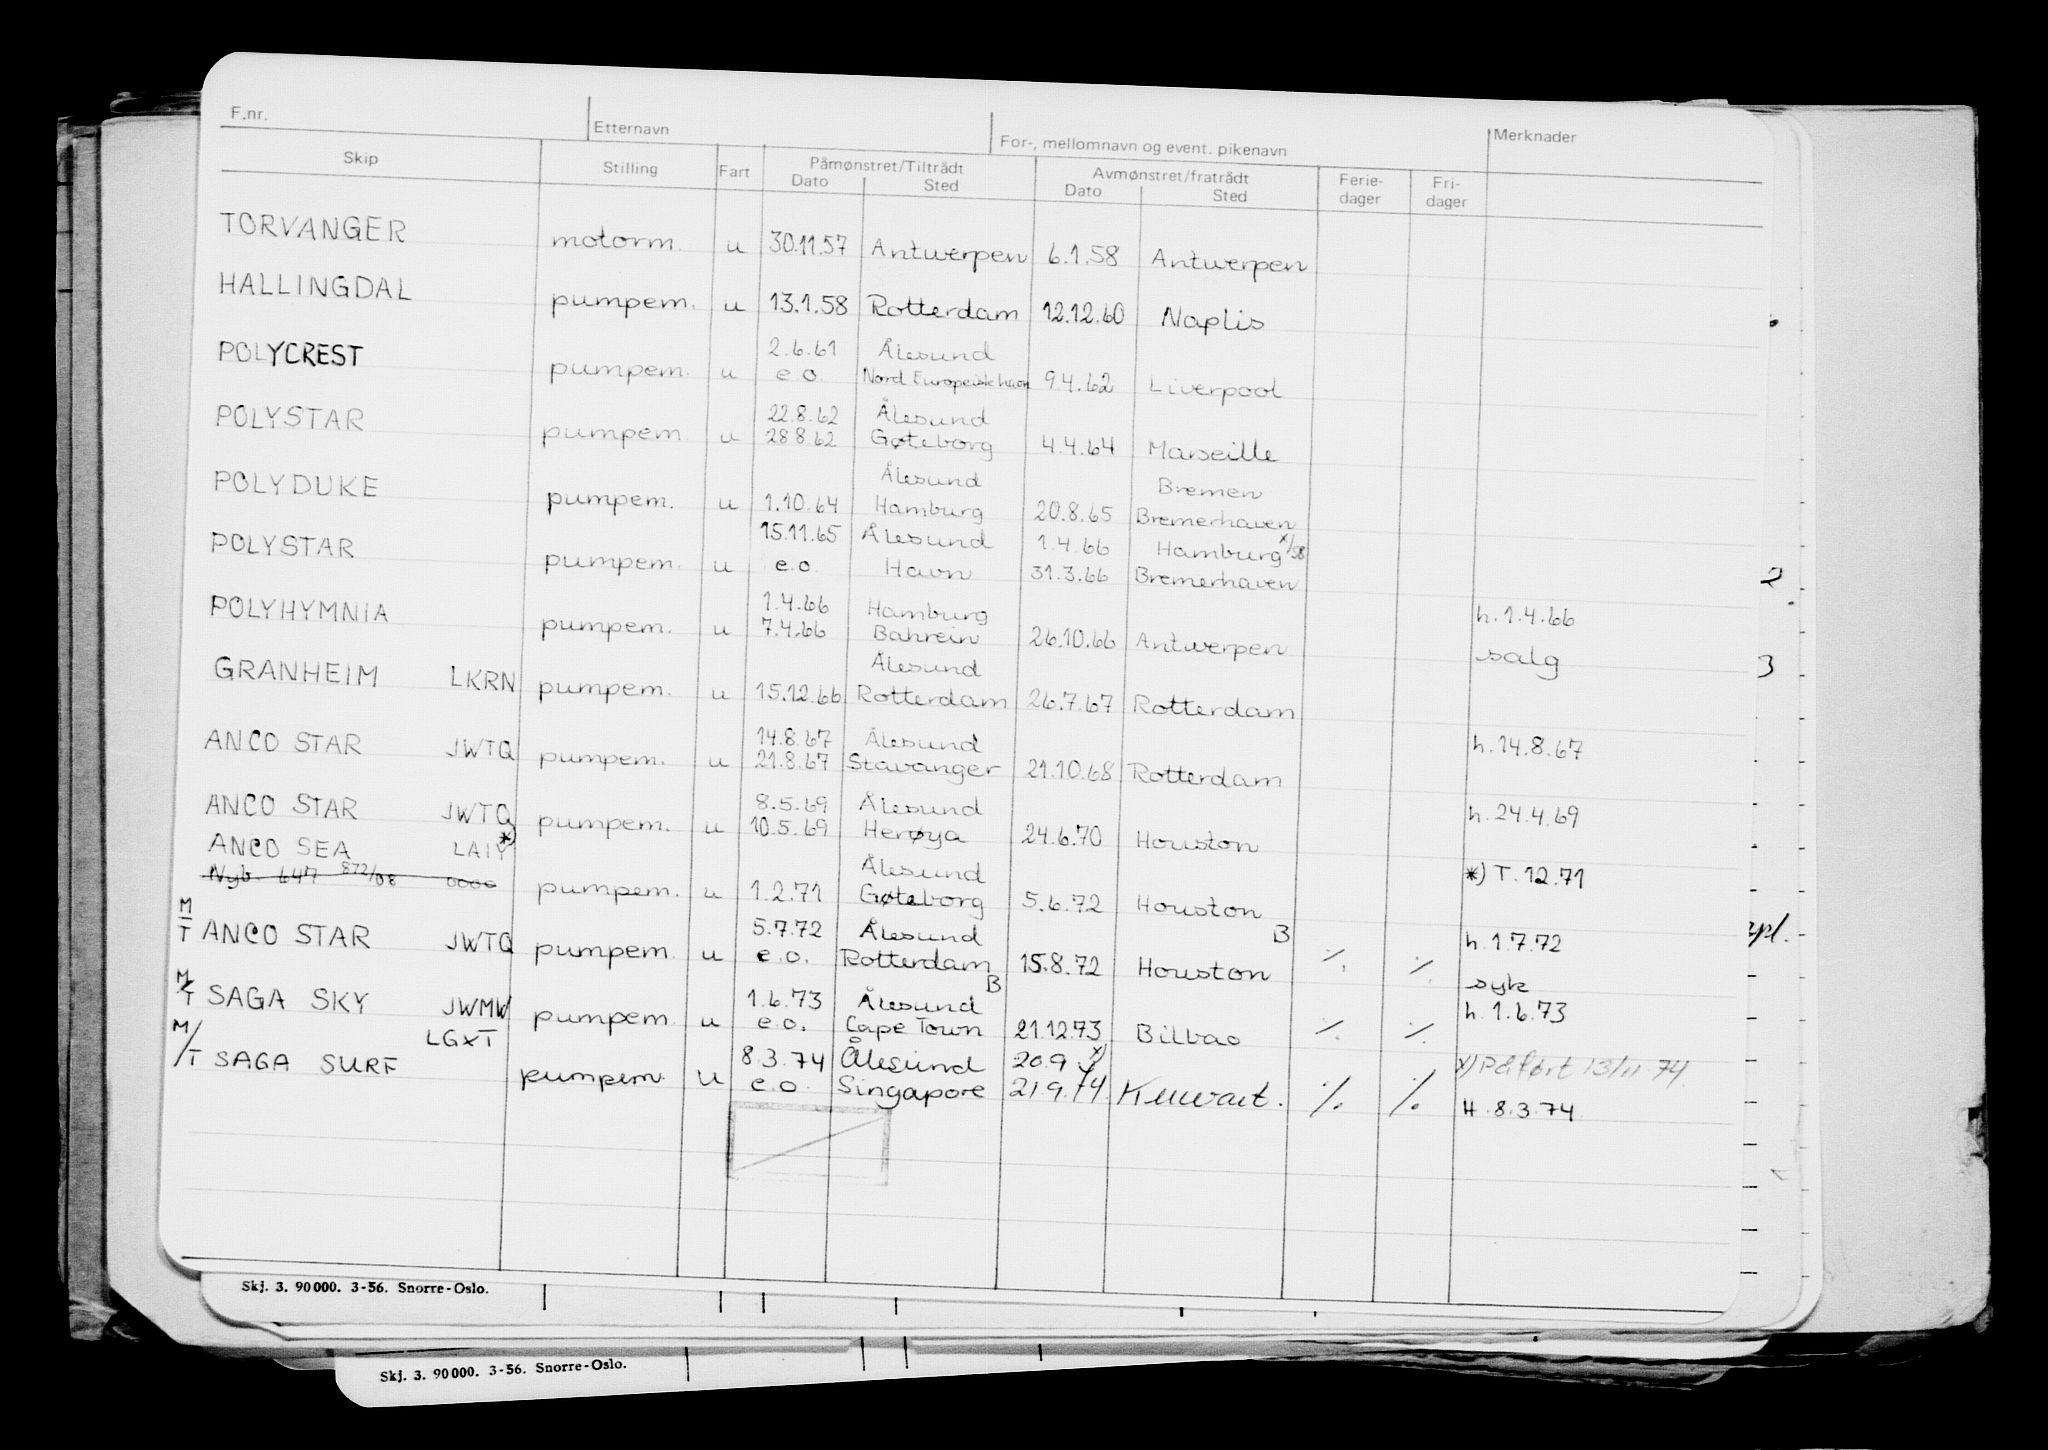 F.nr. Etternavn For-, mellomnavn og event. pikenavn Merknader
Skip Stilling Fart Påmønstret/Tiltrådt Dato Sted Avmønstret/fratrådt Dato Sted Ferie-dager Fri-dager
TORVANGER motorm. u 30.11.57 Antwerpen 6.1.58 Antwerpen
HALLINGDAL pumpem. u 13.1.58 Rotterdam 12.12.60 Naplis
2.6.61 Ålesund
POLYCREST pumpem. u e.o. Nord Europeisk havn 9 4.62 Liverpool
22.8.62 Ålesund
POLYSTAR pumpem. u 28 8.62 Gøteborg 4.4.64 Marseille
Ålesund Bremen
POLYDUKE pumpem. u 1.10.64 Hamburg 20.8.65 Bremerhaven
15.11.65 Ålesund 1.4.66 Hamburg x/58
POLYSTAR pumpem. u e.o. Havn 31.3.66 Bremerhaven
2
1.4.66 Hamburg h.1.4.66
POLYHYMNIA pumpem. u 7.4.66 Bahrein 26.10.66 Antwerpen salg
3
Ålesund
GRANHEIM LKRN pumpem. u 15.12.66 Rotterdam 26.7.67 Rotterdam
14.8.67 Ålesund h.14.8.67
ANCO STAR JWTQ pumpem. u 21.8.67 Stavanger 21.10.68 Rotterdam
8.5.69 Ålesund h.24.4.69
ANCO STAR JWTQ pumpem. u 10.5.69 Herøya 24.6.70 Houston
ANCO SEA LAIY *) Ålesund *) T.12.71
Nyb. 647 872/08 0000 pumpem. u 1.2.71 Gøteborg 5.6.72 Houston
5.7.72 Ålesund B h.1.7.72
M/T ANCO STAR JWTQ pumpem. u e.o. Rotterdam 15.8.72 Houston ./. ./. syk
1.6.73 Ålesund B h.1.6.73
M/T SAGA SKY JWMW pumpem. u e.o. Cape Town 21.12.73 Bilbao ./. ./.
LGXT 8.3.74 Ålesund 20.9 x) x) Påført 13/11-74
M/T SAGA SURF pumpem. u e.o. Singapore 21.9.74 Kuwait. ./. ./. H.8.3.74
Skj. 3. 90 000. 3-56. Snorre-Oslo.
Skj. 3. 90 000. 3-56. Snorre-Oslo.